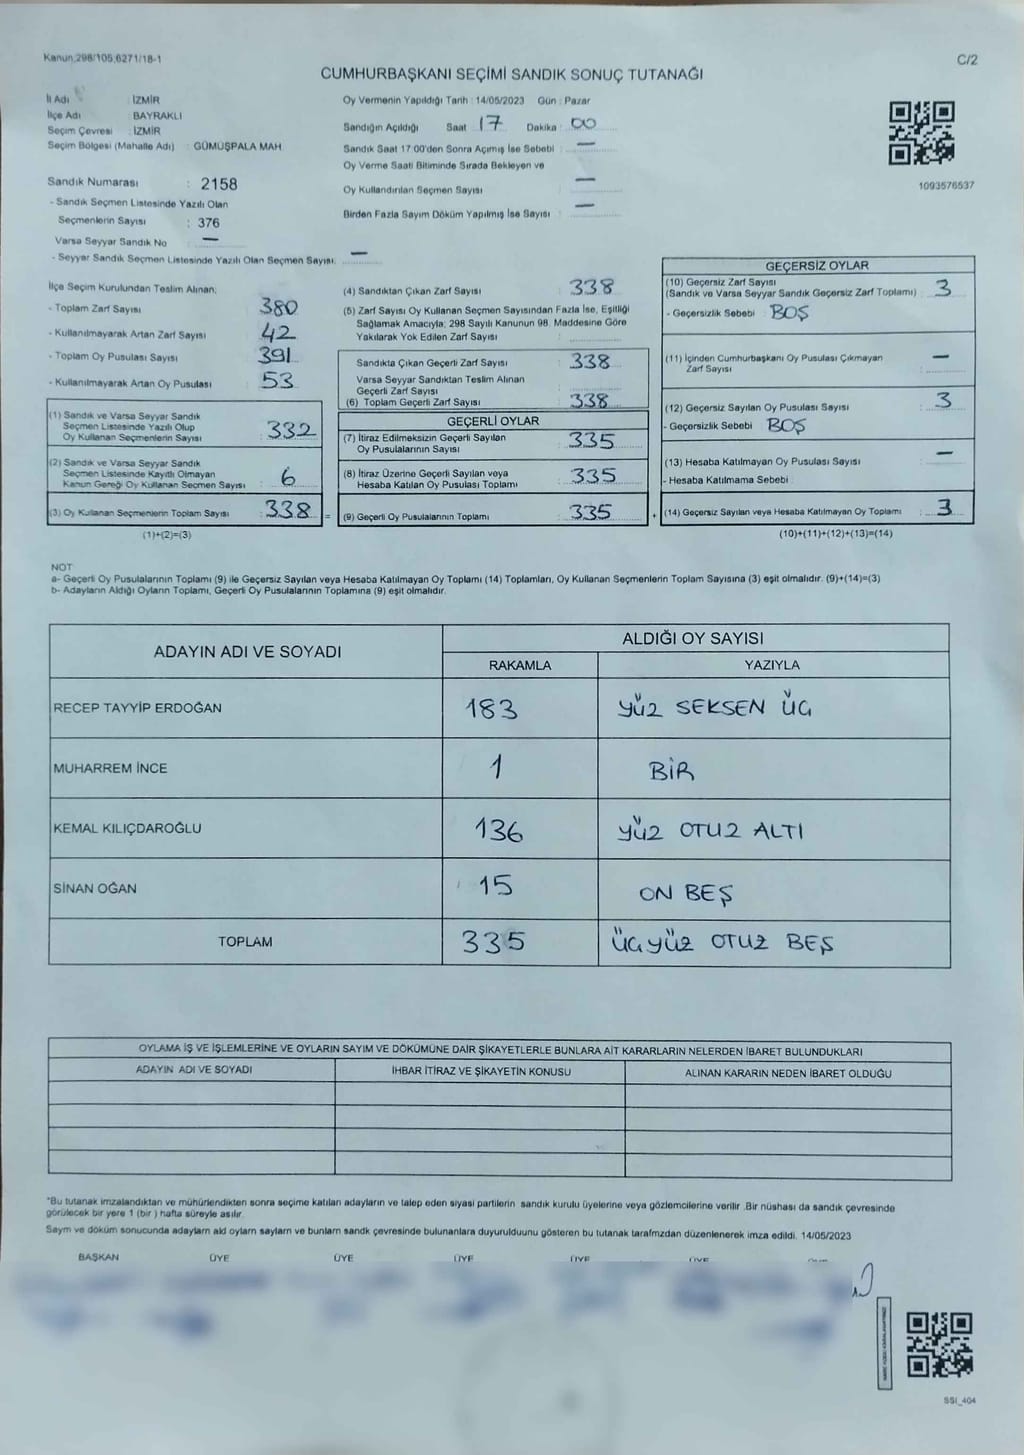 Kanun,298/105,6271/18-1
C/2
CUMHURBAŞKANI SEÇİMİ SANDIK SONUÇ TUTANAĞI
İl Adı : İZMİR
İlçe Adı BAYRAKLI
Seçim Çevresi : İZMİR
Seçim Bölgesi (Mahalle Adı) : GÜMÜŞPALA MAH
Sandık Numarası : 2158
- Sandık Seçmen Listesinde Yazılı Olan
Seçmenlerin Sayısı : 376
Varsa Seyyar Sandık No : —
- Seyyar Sandık Seçmen Listesinde Yazılı Olan Seçmen Sayısı: —
Oy Vermenin Yapıldığı Tarih : 14/05/2023 Gün : Pazar
Sandığın Açıldığı Saat 17 Dakika : 00
Sandık Saat 17:00'den Sonra Açımış İse Sebebi : —
Oy Verme Saati Bitiminde Sırada Bekleyen ve
Oy Kullandırılan Seçmen Sayısı : —
Birden Fazla Sayım Döküm Yapılmış İse Sayısı : —
1093576537
İlçe Seçim Kurulundan Teslim Alınan;
- Toplam Zarf Sayısı : 380
- Kullanılmayarak Artan Zarf Sayısı : 42
- Toplam Oy Pusulası Sayısı : 391
- Kullanılmayarak Artan Oy Pusulası : 53
(1) Sandık ve Varsa Seyyar Sandık
Seçmen Listesinde Yazılı Olup
Oy Kullanan Seçmenlerin Sayısı : 332
(2) Sandık ve Varsa Seyyar Sandık
Seçmen Listesinde Kayıtlı Olmayan
Kanun Gereği Oy Kullanan Seçmen Sayısı : 6
(3) Oy Kullanan Seçmenlerin Toplam Sayısı : 338 =
(1)+(2)=(3)
(4) Sandıktan Çıkan Zarf Sayısı : 338
(5) Zarf Sayısı Oy Kullanan Seçmen Sayısından Fazla İse, Eşitliği
Sağlamak Amacıyla; 298 Sayılı Kanunun 98. Maddesine Göre
Yakılarak Yok Edilen Zarf Sayısı :
Sandıkta Çıkan Geçerli Zarf Sayısı : 338
Varsa Seyyar Sandıktan Teslim Alınan
Geçerli Zarf Sayısı :
(6) Toplam Geçerli Zarf Sayısı : 338
GEÇERLİ OYLAR
(7) İtiraz Edilmeksizin Geçerli Sayılan
Oy Pusulalarının Sayısı : 335
(8) İtiraz Üzerine Geçerli Sayılan veya
Hesaba Katılan Oy Pusulası Toplamı : 335
(9) Geçerli Oy Pusulalarının Toplamı : 335 +
GEÇERSİZ OYLAR
(10) Geçersiz Zarf Sayısı
(Sandık ve Varsa Seyyar Sandık Geçersiz Zarf Toplamı) : 3
- Geçersizlik Sebebi : BOŞ
(11) İçinden Cumhurbaşkanı Oy Pusulası Çıkmayan
Zarf Sayısı : —
(12) Geçersiz Sayılan Oy Pusulası Sayısı : 3
- Geçersizlik Sebebi BOŞ
(13) Hesaba Katılmayan Oy Pusulası Sayısı : —
- Hesaba Katılmama Sebebi :
(14) Geçersiz Sayılan veya Hesaba Katılmayan Oy Toplamı : 3
(10)+(11)+(12)+(13)=(14)
NOT
a- Geçerli Oy Pusulalarının Toplamı (9) ile Geçersiz Sayılan veya Hesaba Katılmayan Oy Toplamı (14) Toplamları, Oy Kullanan Seçmenlerin Toplam Sayısına (3) eşit olmalıdır. (9)+(14)=(3)
b- Adayların Aldığı Oyların Toplamı, Geçerli Oy Pusulalarının Toplamına (9) eşit olmalıdır.
ADAYIN ADI VE SOYADI
ALDIĞI OY SAYISI
RAKAMLA YAZIYLA
RECEP TAYYİP ERDOĞAN 183 YÜZ SEKSEN ÜÇ
MUHARREM İNCE 1 BİR
KEMAL KILIÇDAROĞLU 136 YÜZ OTUZ ALTI
SİNAN OĞAN 15 ON BEŞ
TOPLAM 335 ÜÇYÜZ OTUZ BEŞ
OYLAMA İŞ VE İŞLEMLERİNE VE OYLARIN SAYIM VE DÖKÜMÜNE DAİR ŞİKAYETLERLE BUNLARA AİT KARARLARIN NELERDEN İBARET BULUNDUKLARI
ADAYIN ADI VE SOYADI İHBAR İTİRAZ VE ŞİKAYETİN KONUSU ALINAN KARARIN NEDEN İBARET OLDUĞU
*Bu tutanak imzalandıktan ve mühürlendikten sonra seçime katılan adayların ve talep eden siyasi partilerin sandık kurulu üyelerine veya gözlemcilerine verilir .Bir nüshası da sandık çevresinde
görülecek bir yere 1 (bir ) hafta süreyle asılır.
Saym ve döküm sonucunda adaylarn ald oylarn saylarn ve bunlarn sandk çevresinde bulunanlara duyurulduunu gösteren bu tutanak tarafmzdan düzenlenerek imza edildi. 14/05/2023
BAŞKAN ÜYE ÜYE ÜYE ÜYE ÜYE
SSI_404